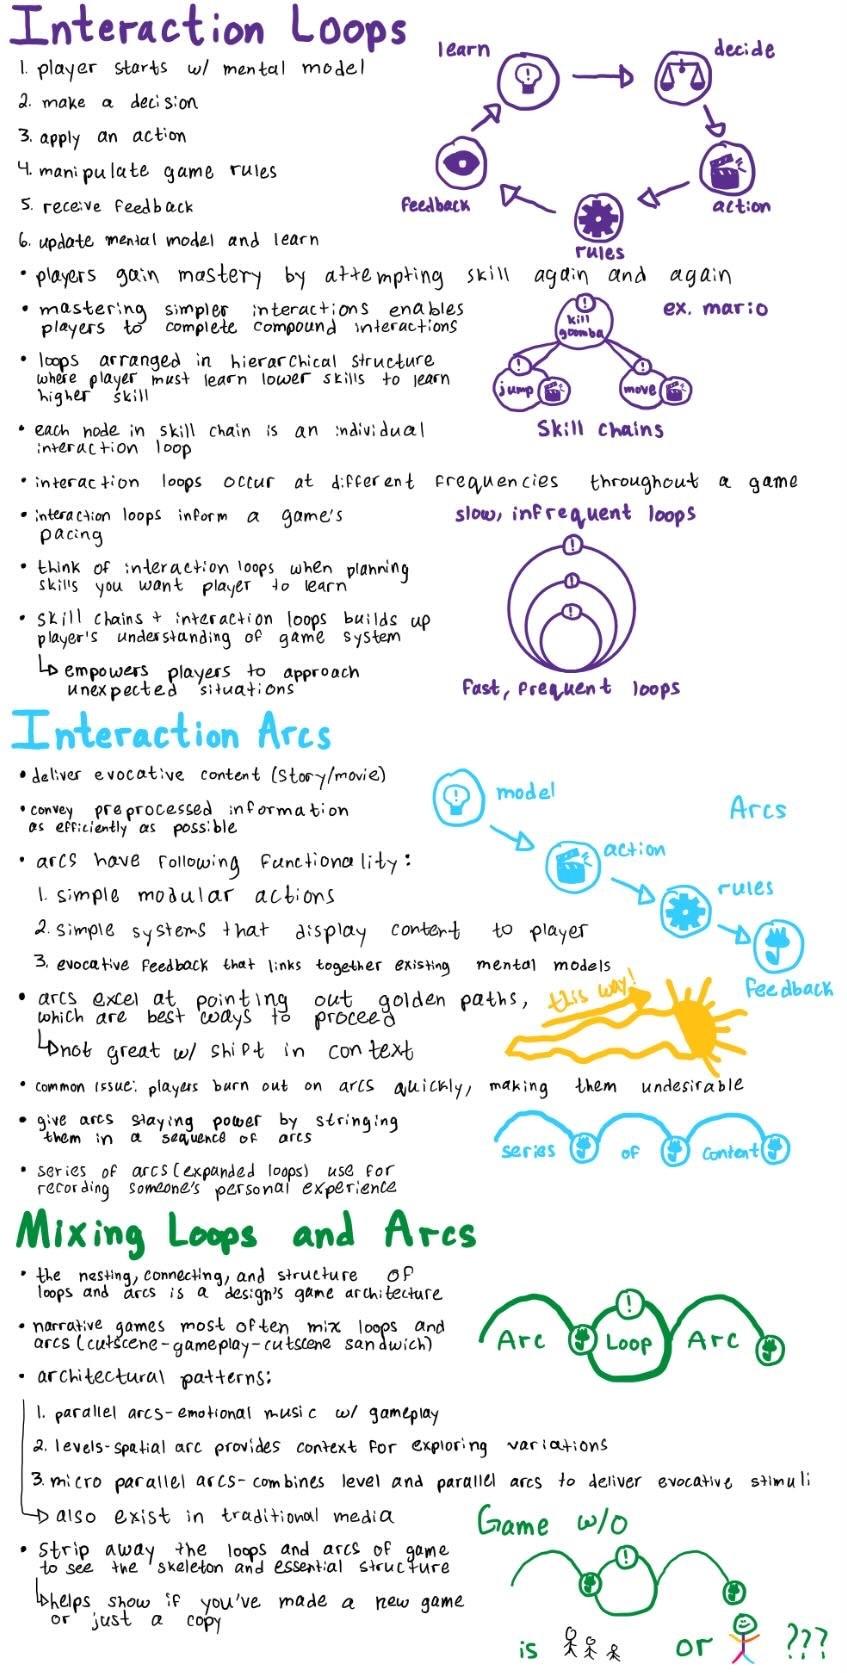 Interaction Loops
1. player starts w/ mental model
2. make a decision
3. apply an action
4. manipulate game rules
5. receive feedback
6. update mental model and learn
learn
decide
action
rules
feedback
• players gain mastery by attempting skill again and again
• mastering simpler interactions enables
players to complete compound interactions
• loops arranged in hierarchical structure
where player must learn lower skills to learn
higher skill
• each node in skill chain is an individual
interaction loop
ex. mario
kill
goomba
jump
move
Skill Chains
• interaction loops occur at different frequencies throughout a game
• interaction loops inform a game's
pacing
• think of interaction loops when planning
skills you want player to learn
• skill chains + interaction loops builds up
player's understanding of game system
↳ empowers players to approach
unexpected situations
slow, infrequent loops
fast, frequent loops
Interaction Arcs
• deliver evocative content (story/movie)
• convey preprocessed information
as efficiently as possible
• arcs have following functionality:
1. simple modular actions
2. simple systems that display content to player
3. evocative feedback that links together existing mental models
model
action
rules
feedback
Arcs
• arcs excel at pointing out golden paths,
which are best ways to proceed
↳ not great w/ shift in context
this way!
• common issue: players burn out on arcs quickly, making them undesirable
• give arcs staying power by stringing
them in a sequence of arcs
• series of arcs (expanded loops) use for
recording someone's personal experience
series of content
Mixing Loops and Arcs
• the nesting, connecting, and structure of
loops and arcs is a design's game architecture
• narrative games most often mix loops and
arcs (cutscene-gameplay-cutscene sandwich)
Arc Loop Arc
• architectural patterns:
1. parallel arcs - emotional music w/ gameplay
2. levels - spatial arc provides context for exploring variations
3. micro parallel arcs - combines level and parallel arcs to deliver evocative stimuli
↳ also exist in traditional media
• strip away the loops and arcs of game
to see the skeleton and essential structure
↳ helps show if you've made a new game
or just a copy
Game w/o
is or ???